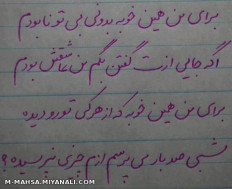 برای من همین خوبه بدونی بی تو نابودم
اگه جایی ازت گفتن بگم من عاشقش بودم
برای من همین خوبه که از هر کی تو رو دیده
شبی صد بار می پرسم ازم چیزی نپرسیده؟
M-MAHSA.MIYANALI.COM